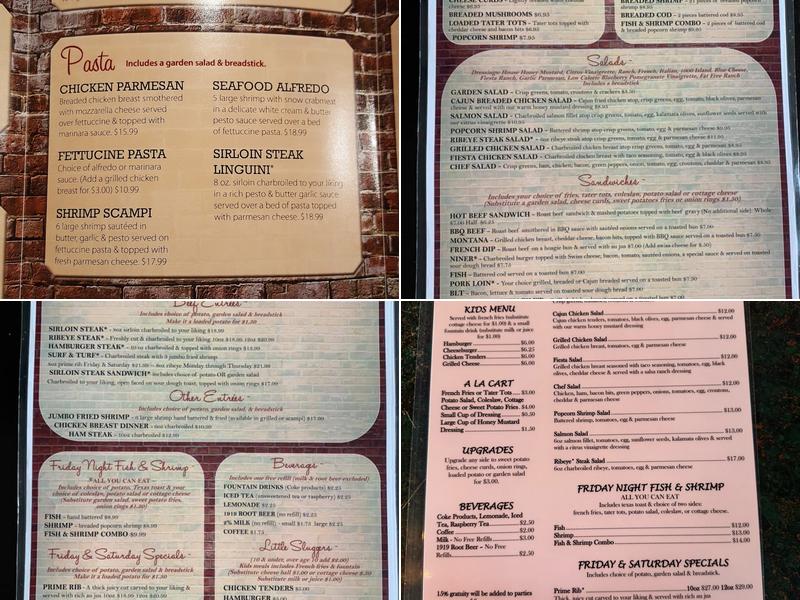 Pasta Includes a garden salad & breadstick.
CHICKEN PARMESAN
Breaded chicken breast smothered
with mozzarella cheese served
over fettuccine & topped with
marinara sauce. $15.99
FETTUCINE PASTA
Choice of alfredo or marinara
sauce. (Add a grilled chicken
breast for $3.00) $10.99
SHRIMP SCAMPI
6 large shrimp sautéed in
butter, garlic & pesto served on
fettuccine pasta & topped with
fresh parmesan cheese. $17.99
SEAFOOD ALFREDO
5 large shrimp with snow crabmeat
in a delicate white cream & butter
pesto sauce served over a bed
of fettuccine pasta. $18.99
SIRLOIN STEAK
LINGUINI*
8 oz. sirloin charbroiled to your liking
in a rich pesto & butter garlic sauce
served over a bed of pasta topped
with parmesan cheese. $18.99
BREADED MUSHROOMS $6.95
LOADED TATER TOTS - Tater tots topped with
cheddar cheese and bacon bits $6.95
POPCORN SHRIMP $7.95
popcorn shrimp
BREADED COD - 2 pieces battered cod
FISH & SHRIMP COMBO - 2 pieces of battered cod
& breaded popcorn shrimp
Salads
Dressings: House Honey Mustard, Citrus Vinaigrette, Ranch, French, Italian, 1000 Island, Blue Cheese,
Fiesta Ranch, Garlic Parmesan, Low Calorie Blueberry Pomegranate Vinaigrette, Fat Free Ranch
Includes a breadstick
GARDEN SALAD - Crisp greens, tomato, croutons & crackers
CAJUN BREADED CHICKEN SALAD - Cajun fried chicken atop, crisp greens, egg, tomato, black olives, parmesan
cheese & served with our warm honey mustard dressing
SALMON SALAD - Charbroiled salmon fillet atop crisp greens, tomato, egg, kalamata olives, sunflower seeds served with
our citrus vinaigrette
POPCORN SHRIMP SALAD - Battered shrimp atop crisp greens, tomato, egg & parmesan cheese
RIBEYE STEAK SALAD* - 6oz ribeye steak atop crisp greens, tomato, egg & parmesan cheese
GRILLED CHICKEN SALAD - Charbroiled chicken breast atop crisp greens, tomato, egg & parmesan
FIESTA CHICKEN SALAD - Charbroiled chicken breast with taco seasoning, tomato, egg & black olives
CHEF SALAD - Crisp greens, ham, chicken, bacon, green peppers, onion, tomato, egg, croutons, cheddar & parmesan
Sandwiches
Includes your choice of fries, tater tots, coleslaw, potato salad or cottage cheese
(Substitute a garden salad, cheese curds, sweet potatoes fries or onion rings $1.50)
HOT BEEF SANDWICH - Roast beef sandwich & mashed potatoes topped with beef gravy (No additional side) Whole
$7.00 Half
BBQ BEEF - Roast beef smothered in BBQ sauce with sautéed onions served on a toasted bun $7.00
MONTANA - Grilled chicken breast, cheddar cheese, bacon bits, topped with BBQ sauce served on a toasted bun
FRENCH DIP - Roast beef on a hoagie bun & served with au jus $7.00 (Add swiss cheese for $.50)
NINER* - Charbroiled burger topped with Swiss cheese, bacon, tomato, sautéed onions, a special sauce & served on toasted
sour dough bread
FISH - Battered cod served on a toasted bun $7.00
PORK LOIN* - Your choice grilled, breaded or Cajun breaded served on a toasted bun
BLT - Bacon, lettuce & tomato served on toasted sour dough bread $7.00
Beef Entrées
Includes choice of potato, garden salad & breadstick
Make it a loaded potato for $1.50
SIRLOIN STEAK* - 8oz sirloin charbroiled to your liking $18.99
RIBEYE STEAK* - Freshly cut & charbroiled to your liking
HAMBURGER STEAK* - charbroiled & topped with onion rings
SURF & TURF* - Charbroiled steak with 3 jumbo fried shrimp
SIRLOIN STEAK SANDWICH* includes choice of potato OR garden salad
Charbroiled to your liking, open faced on sour dough toast, topped with onion rings
Other Entrées
Includes choice of potato, garden salad, & breadstick
JUMBO FRIED SHRIMP - 6 large shrimp hand battered & fried (available in grilled or scampi)
CHICKEN BREAST DINNER - 8oz charbroiled
HAM STEAK - 10oz charbroiled $12.99
Friday Night Fish & Shrimp
*ALL YOU CAN EAT
Includes choice of potato, Texas toast & your
choice of coleslaw, potato salad or cottage cheese
(Substitute garden salad, sweet potato fries,
onion rings $1.50)
FISH - hand battered
SHRIMP - breaded popcorn shrimp
FISH & SHRIMP COMBO $9.99
Friday & Saturday Specials
Includes choice of potato, garden salad & breadstick
Make it a loaded potato for $1.50
PRIME RIB - A thick juicy cut carved to your liking &
Beverages
Includes one free refill (milk & root beer excluded)
FOUNTAIN DRINKS (Coke products) $2.25
ICED TEA (unsweetened tea or raspberry) $2.25
LEMONADE $2.25
1919 ROOT BEER (no refill) $2.25
2% MILK (no refill) - small $1.75 large $2.25
COFFEE $1.75
Little Sluggers
(10 & under, over age 10 add $2.00)
Kids meals includes French fries & fountain
(Substitute cheese ball $1.00 or cottage cheese
Substitute milk or juice $1.00)
CHICKEN TENDERS $5.00
HAMBURGER
KIDS MENU
Served with french fries (substitute
cottage cheese for $1.00) & a small
fountain drink (substitute milk or juice
for $1.00)
Hamburger $6.00
Cheeseburger $6.25
Chicken Tenders $6.00
Grilled Cheese $6.00
A LA CART
French Fries or Tater Tots $3.00
Potato Salad, Coleslaw, Cottage
Cheese or Sweet Potato Fries. $4.00
Small Cup of Dressing $0.50
Large Cup of Honey Mustard
Dressing $1.50
UPGRADES
Upgrade any side to sweet potato
fries, cheese curds, onion rings,
loaded potato or garden salad
for $3.00.
BEVERAGES
Coke Products, Lemonade, Iced
Tea, Raspberry Tea $2.50
Coffee $2.00
Milk - No Free Refills $3.00
1919 Root Beer - No Free
Refills $2.50
15% gratuity will be added to parties
Cajun Chicken Salad $12.00
Cajun chicken tenders, tomatoes, black olives, egg, parmesan cheese & served
with our warm honey mustard dressing
Grilled Chicken Salad $12.00
Grilled chicken breast, tomatoes, egg, parmesan cheese
Fiesta Salad $12.00
Grilled chicken breast seasoned with taco seasoning, tomatoes, egg, black
olives, cheddar cheese & served with a salsa ranch dressing
Chef Salad $12.00
Chicken, ham, bacon bits, green peppers, onions, tomatoes, egg, croutons,
cheddar & parmesan cheese
Popcorn Shrimp Salad $13.00
Battered shrimp, tomatoes, egg & parmesan cheese
Salmon Salad $13.00
6oz salmon fillet, tomatoes, egg, sunflower seeds, kalamata olives & served
with a citrus vinaigrette dressing
Ribeye* Steak Salad $17.00
6oz charbroiled ribeye, tomatoes, egg & parmesan cheese
FRIDAY NIGHT FISH & SHRIMP
ALL YOU CAN EAT
Includes texas toast & choice of two sides:
french fries, tater tots, potato salad, coleslaw, or cottage cheese.
Fish $12.00
Shrimp $13.00
Fish & Shrimp Combo $14.00
FRIDAY & SATURDAY SPECIALS
Includes choice of potato, garden salad & breadstick.
Prime Rib* 10oz $27.00 12oz $29.00
Thick, juicy cut carved to your liking & served with rich au jus